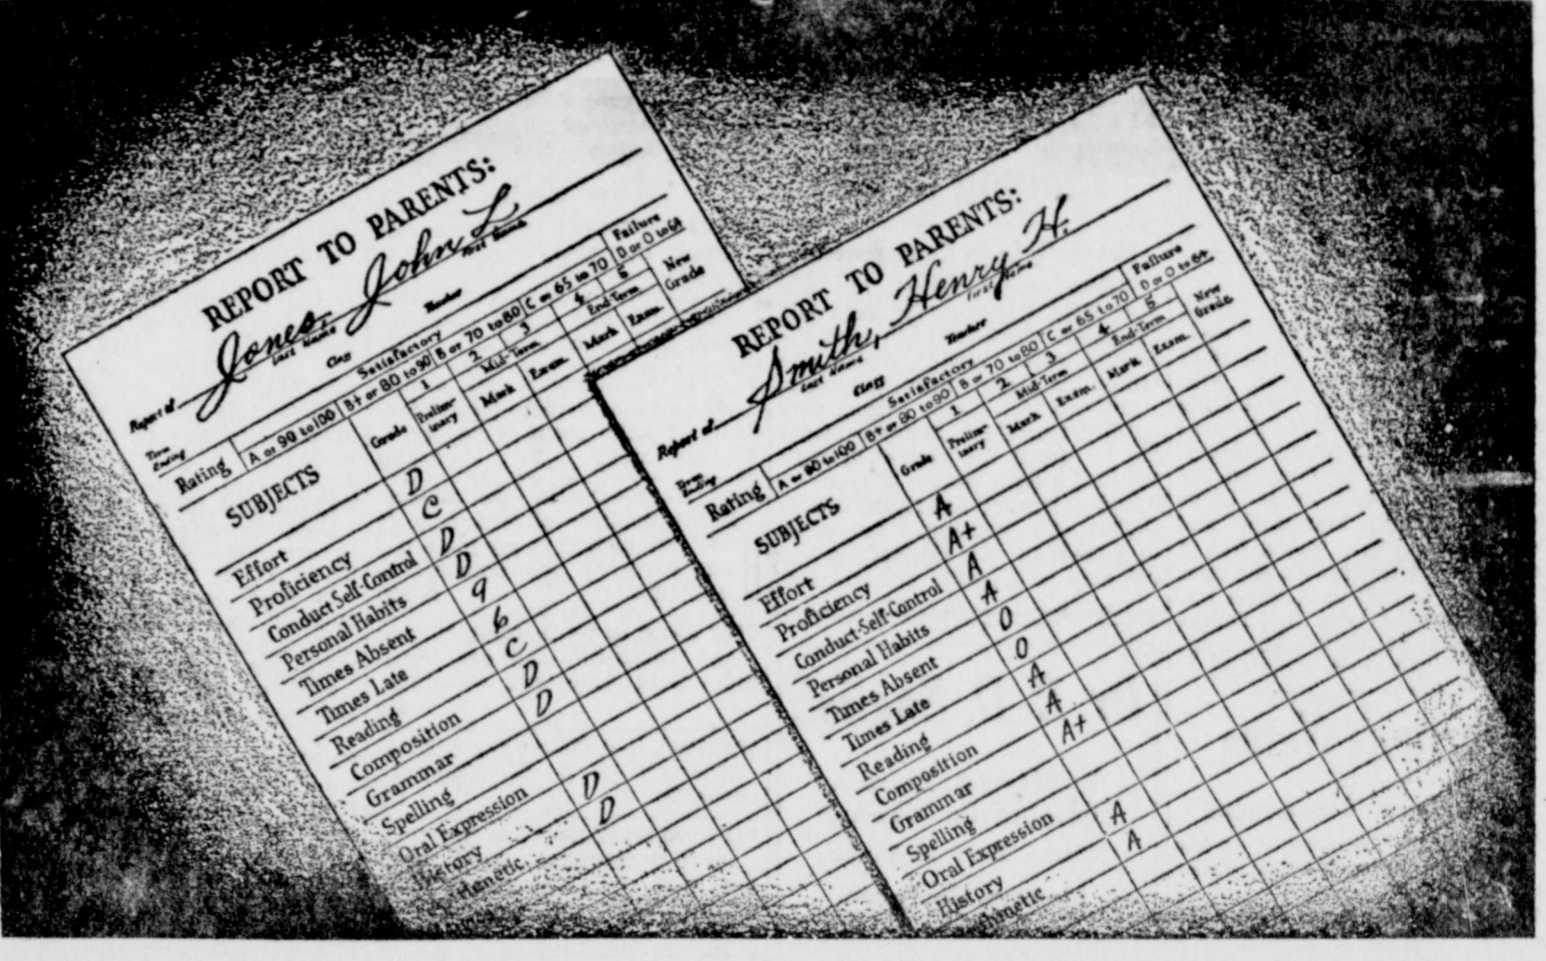 REPORT TO PARENTS:
Report of Jones, John L
Last Name First Name
Class Teacher
Term Ending
Satisfactory Failure
Rating A or 90 to 100 B+ or 80 to 90 B or 70 to 80 C or 65 to 70 D or 0 to 64
SUBJECTS Grade 1 2 3 4 5 New Grade
Prelim-inary Mid-Term End-Term
Mark Exam. Mark Exam.
Effort D
Proficiency C
Conduct-Self-Control D
Personal Habits D
Times Absent 9
Times Late 6
Reading C
Composition D
Grammar D
Spelling
Oral Expression
History D
thmetic D
REPORT TO PARENTS:
Report of Smith, Henry H.
Last Name First Name
Class Teacher
Term Ending
Satisfactory Failure
Rating A or 90 to 100 B+ or 80 to 90 B or 70 to 80 C or 65 to 70 D or 0 to 64
SUBJECTS Grade 1 2 3 4 5 New Grade
Prelim-inary Mid-Term End-Term
Mark Exam. Mark Exam.
Effort A
Proficiency A+
Conduct-Self-Control A
Personal Habits A
Times Absent 0
Times Late 0
Reading A
Composition A
Grammar A+
Spelling
Oral Expression
History A
hmetic A